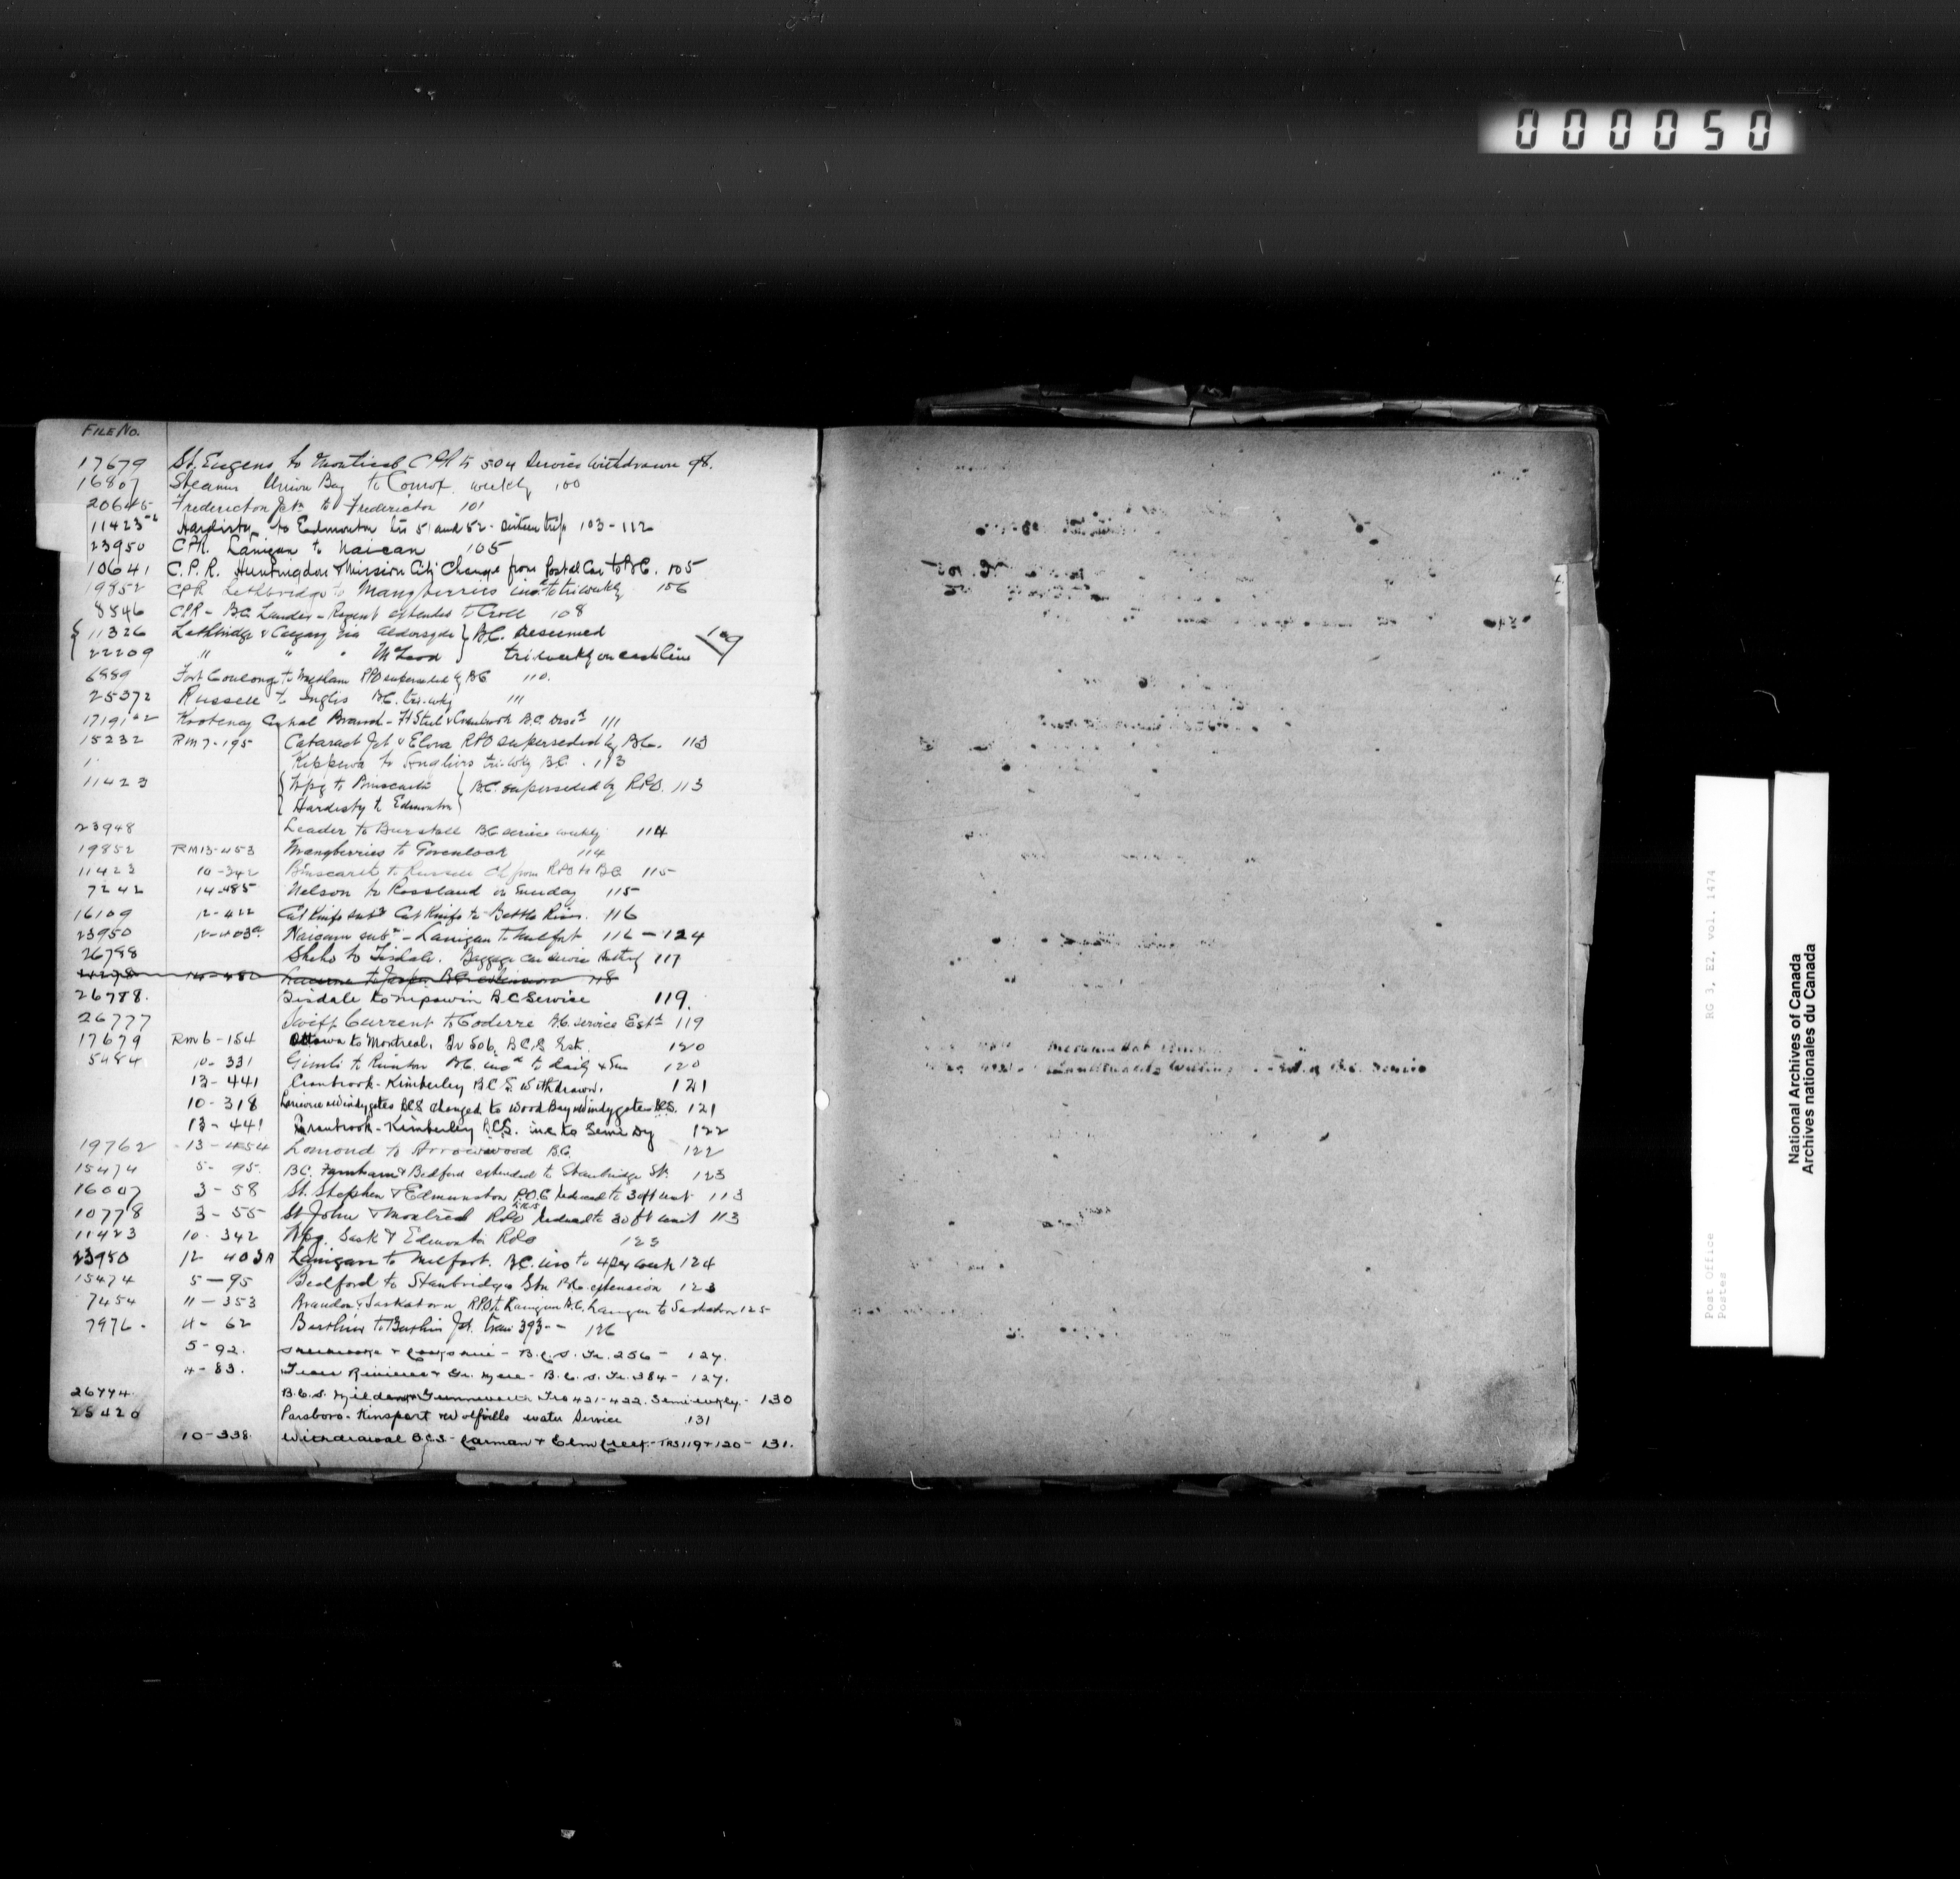 000050
FILE No.
17679 St. Eugene to Montreal C.P.R. tr 504 Service withdrawn 98.
16807 Steamer Union Bay to Comox weekly 100
20645 Fredericton Jctn to Fredericton 101
11423 Hardisty to Edmonton trs 51 and 52 - sixteen trip 103-112
23950 CPR. Lanigan to Naicam 105
10641 C.P.R. Huntingdon & Mission City Change from Postal Car to B.C. 105
19852 CPR Lethbridge to Manyberries incd to tri weekly 106
8846 CPR - B.C. Lauder - Regent extended to Goll 108
11326 Lethbridge & Calgary via Aldersyde } B.C. resumed 109
22209 " " " McLeod } tri weekly on each line
6889 Fort Coulonge to Waltham RPO superseded by BC 110.
25372 Russell to Inglis B.C. tri-wkly 111
17191 Kootenay Central Branch - Ft Steele & Cranbrook B.C. Discd 111
15232 RM 7-195 Cataract Jct & Elora RPO superseded by B.C. 113
Kippewa to Angliers tri-wkly B.C. 113
11423 { Wpg to Binscarth { B.C. superseded by RPO. 113
{ Hardisty to Edmonton
23948 Leader to Burstall B.C. service weekly 114
19852 RM13-453 Manyberries to Govenlock 114
11423 10-342 Binscarth to Russell Ch from RPO to BC 115
7242 14-485 Nelson to Rossland on Sunday 115
16109 12-422 Cut Knife subd Cut Knife to Battle River. 116
23950 12-403a Naicam subd - Lanigan to Melfort 116-124
26788 Sheho to Tisdale. Baggage car service 117
14-480 Lucerne to Jasper B.C. extension 118
26788. Tisdale to Nipawin B.C Service 119.
26777 Swift Current to Coderre B.C. service Estd 119
17679 RM 6-154 Ottawa to Montreal. Tr 506 B.C.S Est. 120
5484 10-331 Gimli to Riverton B.C. incd to daily x Sun 120
13-441 Cranbrook-Kimberley B.C.S. Withdrawn. 121
10-318 Lariviere & Windygates BCS changed to Wood Bay & Windygates BCS. 121
13-441 Cranbrook-Kimberley B.C.S. inc to Semi Dy 122
19762 13-454 Lomond to Arrowwood B.C. 122
15474 5-95. B.C. Farnham & Bedford extended to Stanbridge St. 123
16007 3-58 St. Stephen & Edmunston P.O.C reduced to 30 ft unit 113
10778 3-55 St John & Montreal RPO reduced to 30 ft unit 113
11423 10-342 Wpg. Sask & Edmonton RPO 123
23950 12 403A Lanigan to Melfort. B.C. inc to 4 per week 124
15474 5-95 Bedford to Stanbridge Stn B.C. extension 123
7454 11-353 Brandon & Saskatoon RPO to Lanigan B.C. Lanigan to Saskatoon 125
7976 - 4-62 to Jct. train 393 - 126
5-92. Sherbrooke & Cookshire - B.C.S. Tr. 256 - 127.
4-83. Trois Rivieres & Gr. Mere - B.C.S. Tr. 384 - 127.
26774 B.C.S. Milden & Gunnworth Trs 421-422. Semi-wkly. - 130
25420 Parsboro - Kinsport & Wolfville water service 131
10-338. Withdrawal B.C.S - Carman & Elm Creek - TRS 119 & 120 - 131.
Post Office RG 3, E2, vol. 1474
Postes
National Archives of Canada
Archives nationales du Canada